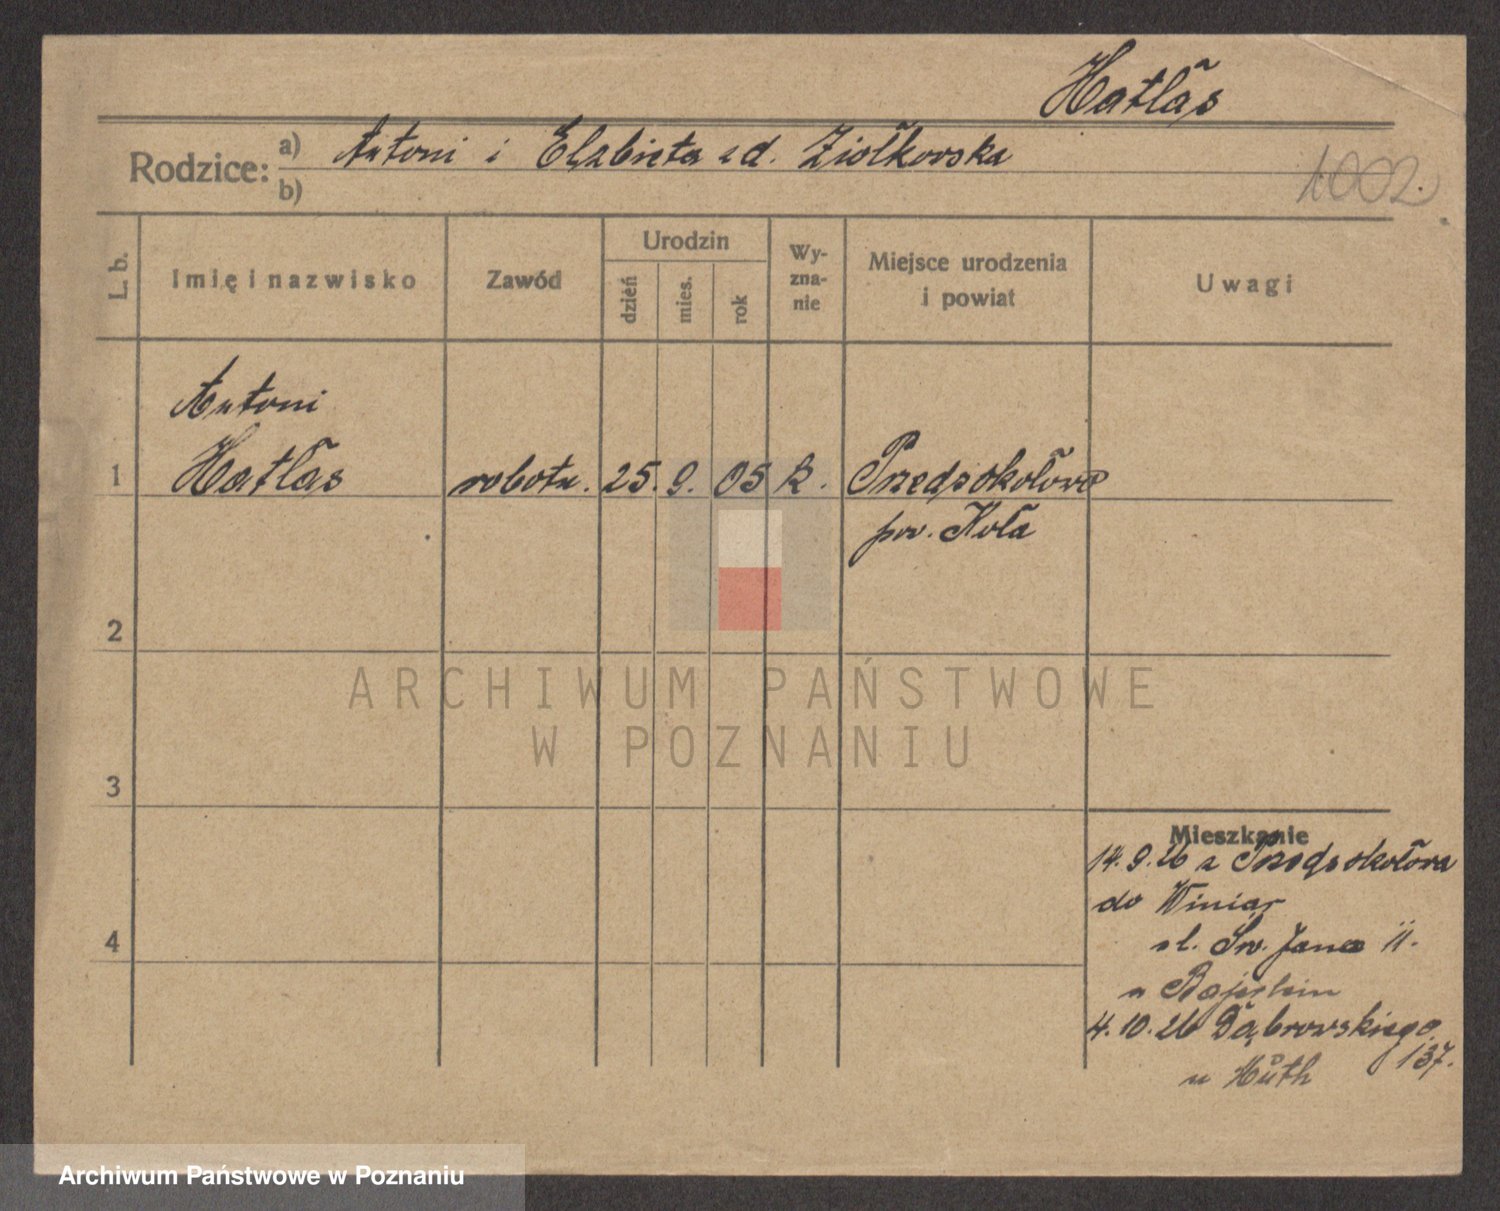 Hatłas
Rodzice: a) Antoni i Elżbieta zd. Ziółkowska
b)
1002.
L. b. Imię i nazwisko Zawód Urodzin dzień mies. rok Wy-zna-nie Miejsce urodzenia i powiat Uwagi
Antoni
1 Hatłas robotn. 25. 9. 05 k. Przedsokołowo
pow. Koła
2
ARCHIWUM PAŃSTWOWE
W POZNANIU
3
Mieszkanie
14.9.26 z
do Winiar
4 ul. Św. Jana 11.
u
4.10.26 Dąbrowskiego
137.
u Hüth
Archiwum Państwowe w Poznaniu